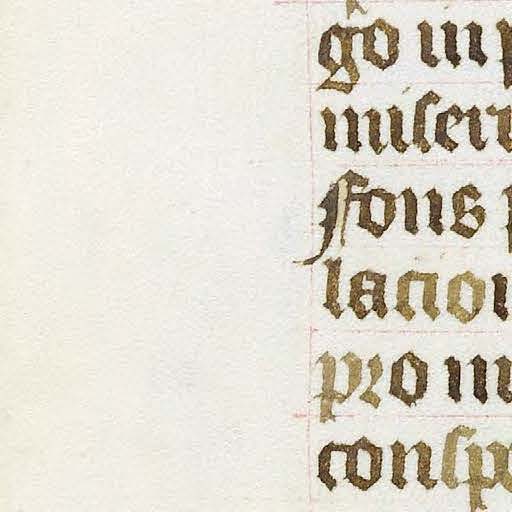 go in p
miser
fons p
lacion
pro m
consp